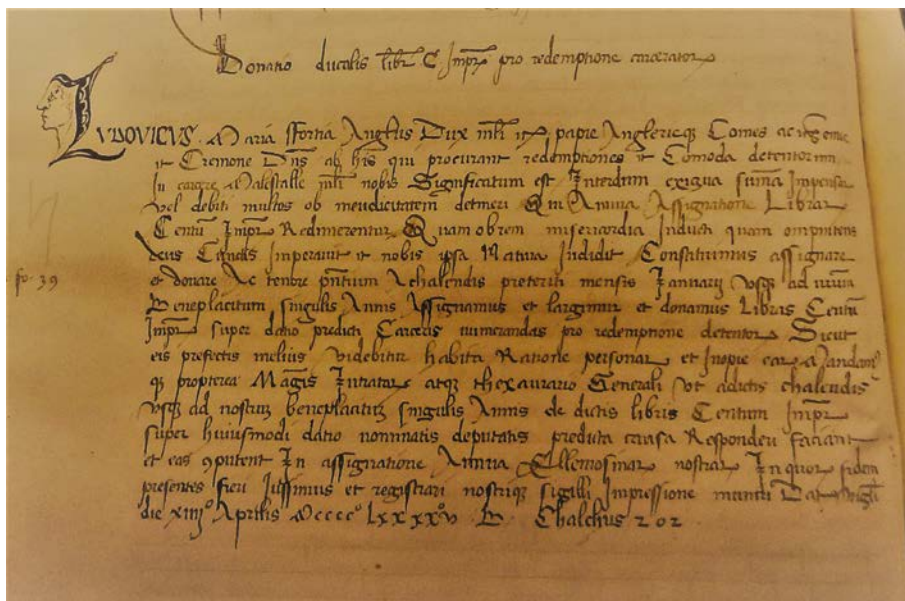 Donatio ducalis libr C. Impr pro redemptione carcerator
LVDOVICUS Maria Sfortia Anglus Dux mli etc papie Anglerieq Comes ac
et Cremone Dns ab his qui procurant redemptiones et Comoda detentorum
In carcere Malestalle mli nobis Significatum est Interdum exigua suma Impensar
vel debiti multos ob mendicitatem detineri Qui Annua Assignatione Librar
Centu Impr Redimerentur Quam obrem misericordia Inducti quam omnipotens
deus Cunctis Imperavit et nobis ipsa Natura Indidit Constituimus assignare
fo. 39
et donare Ac tenore pntium Achalendis preteriti mensis Januarij Usq ad
Beneplacitum singulis Annis Assignamus et largimur et donamus Libras Centu
Impr super datio predicti Carceris numerandas pro redemptione detentor Sicut
eis prefectis melius Videbitur habita Ratione personar et Inopie ear Mandam
q propterea Magris Intratar atq thexaurario Generali Vt adictis chalendis
Usq ad nostrum beneplacitum singulis Annis de dictis libris Centum Impr
super huiusmodi datio nominatis deputatis predicta causa Responderi faciant
et eas 9putent In assignatione Annua Ellemosinar nostrar In quor fidem
presentes fieri Iussimus et registrari nostriq sigilli Impressione muniri Dat
die xiiij° Aprilis Mcccc° Lxxxxv B Chalchus